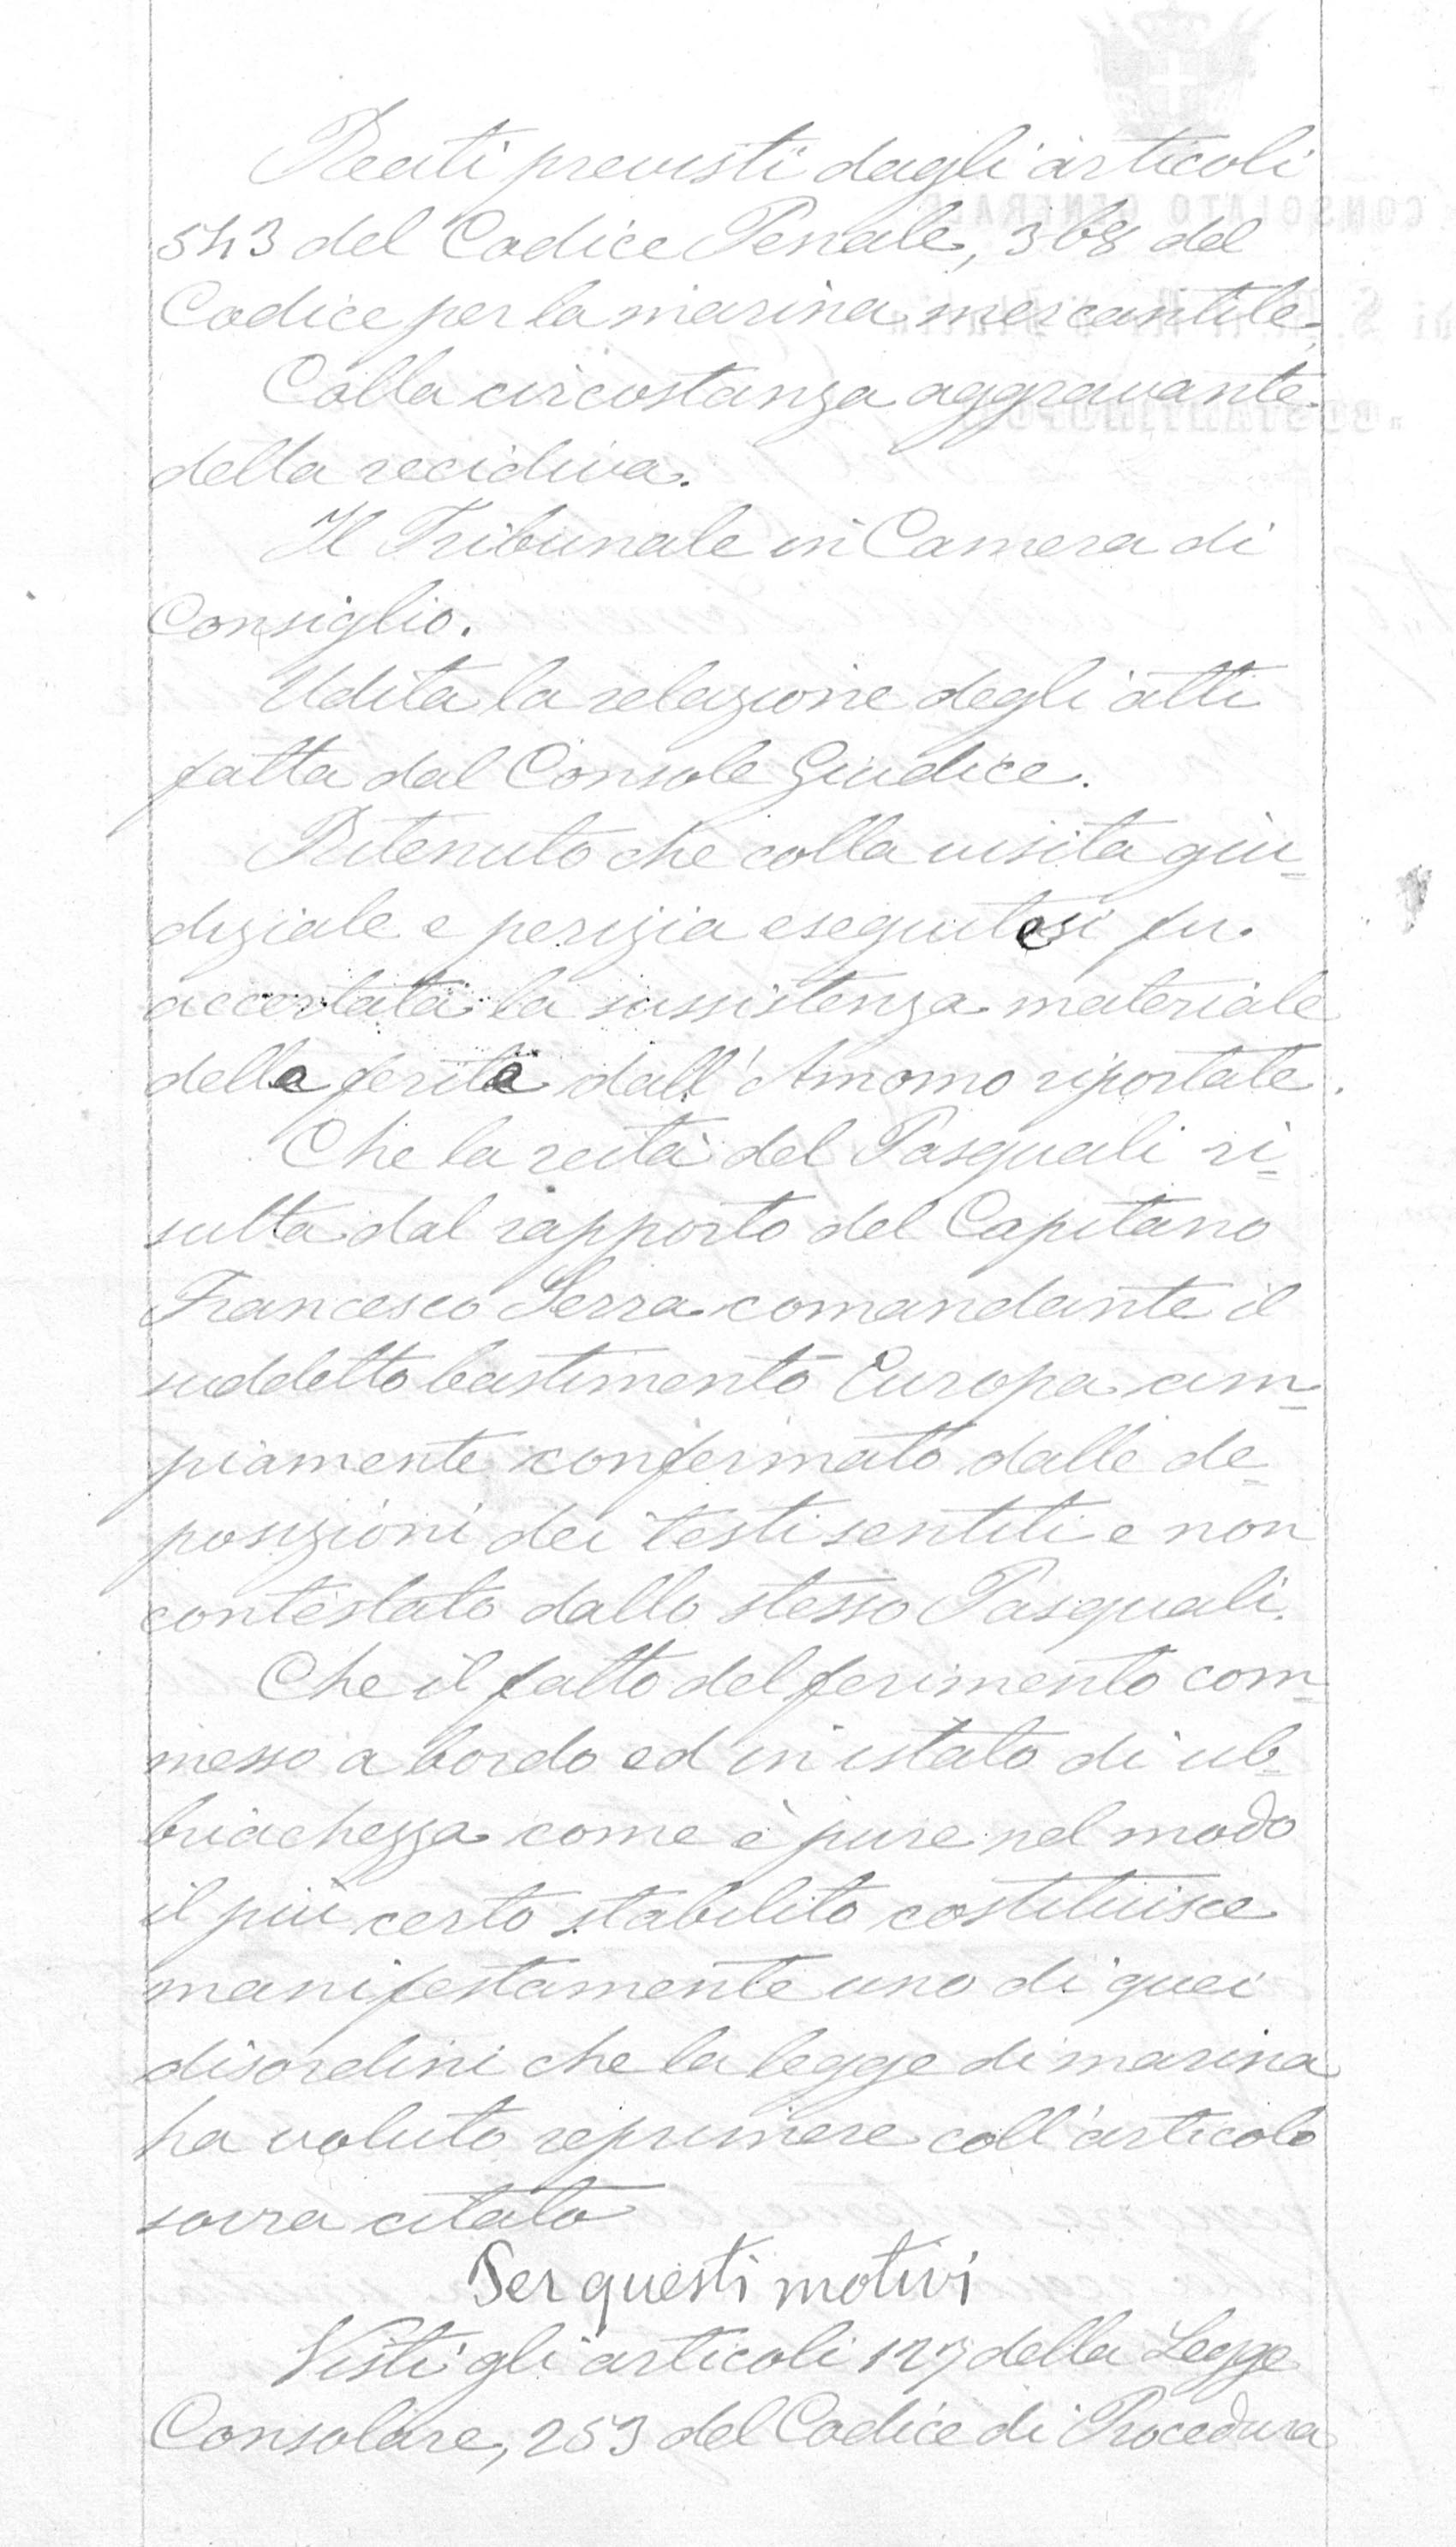 Reati previsti dagli articoli
543 del Codice Penale, 368 del
Codice per la marina mercantile.
Colla circostanza aggravante
della recidiva.
Il Tribunale in Camera di
Consiglio.
Udita la relazione degli atti
fatta dal Console Giudice.
Ritenuto che colla visita giu-
diziale e perizia eseguitesi fu
accertata la sussistenza materiale
della ferita dall'Amomo riportate.
Che la reità del Pasquali ri-
sulta dal rapporto del Capitano
Francesco Serra comandante il
suddetto bastimento Europa am-
piamente confermato dalle de-
posizioni dei testi sentiti e non
contestato dallo stesso Pasquali.
Che il fatto del ferimento com-
messo a bordo ed in istato di ub-
briachezza come è pure nel modo
il più certo stabilito costituisce
manifestamente uno di quei
disordini che la legge di marina
ha voluto reprimere coll'articolo
sovra citato
Per questi motivi
Visti gli articoli 127 della Legge
Consolare, 253 del Codice di Procedura